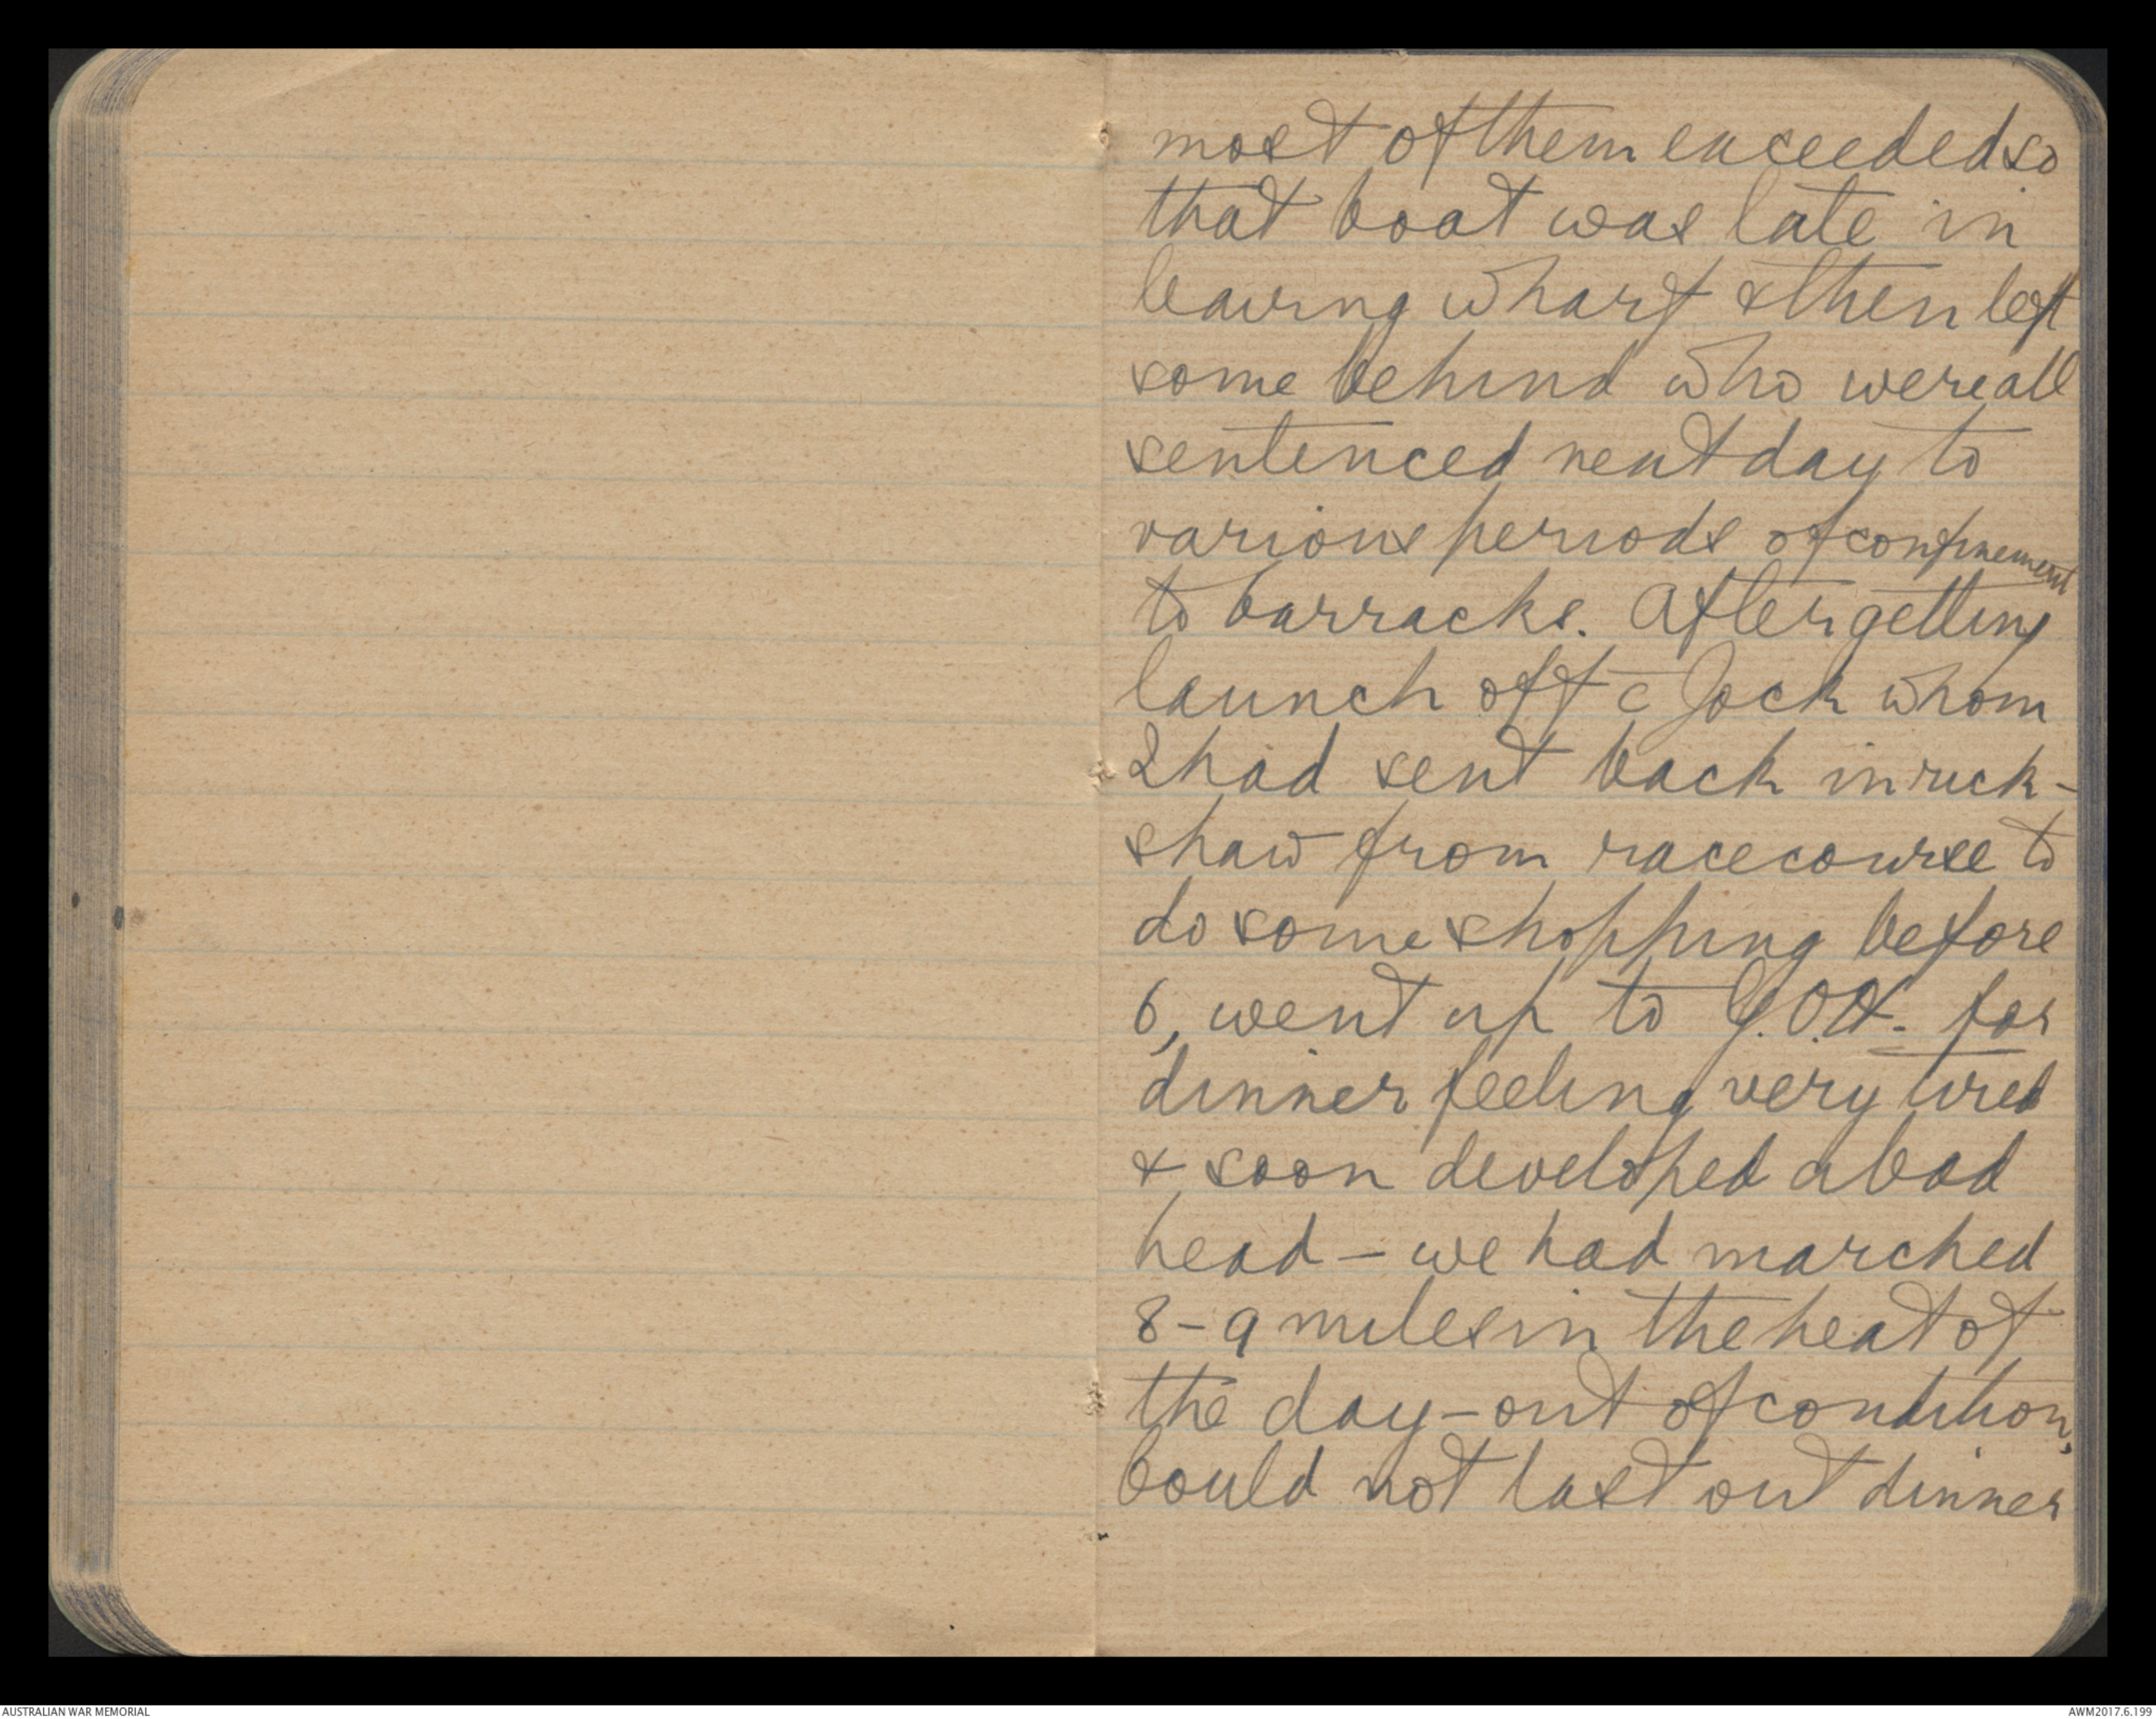 most of them exceeded so
that boat was late in
leaving wharf & then left
some behind who were all
sentenced next day to
various periods of confinement
to barracks. After getting
launch off c̄ Jock whom
I had sent back in rick-
shaw from racecourse to
do some shopping before
6, went up to G.O.H. for
dinner feeling very tired
& soon developed a bad
head - we had marched
8-9 miles in the heat of
the day - out of condition,
Could not last out dinner
AUSTRALIAN WAR MEMORIAL
AWM2017.6.199